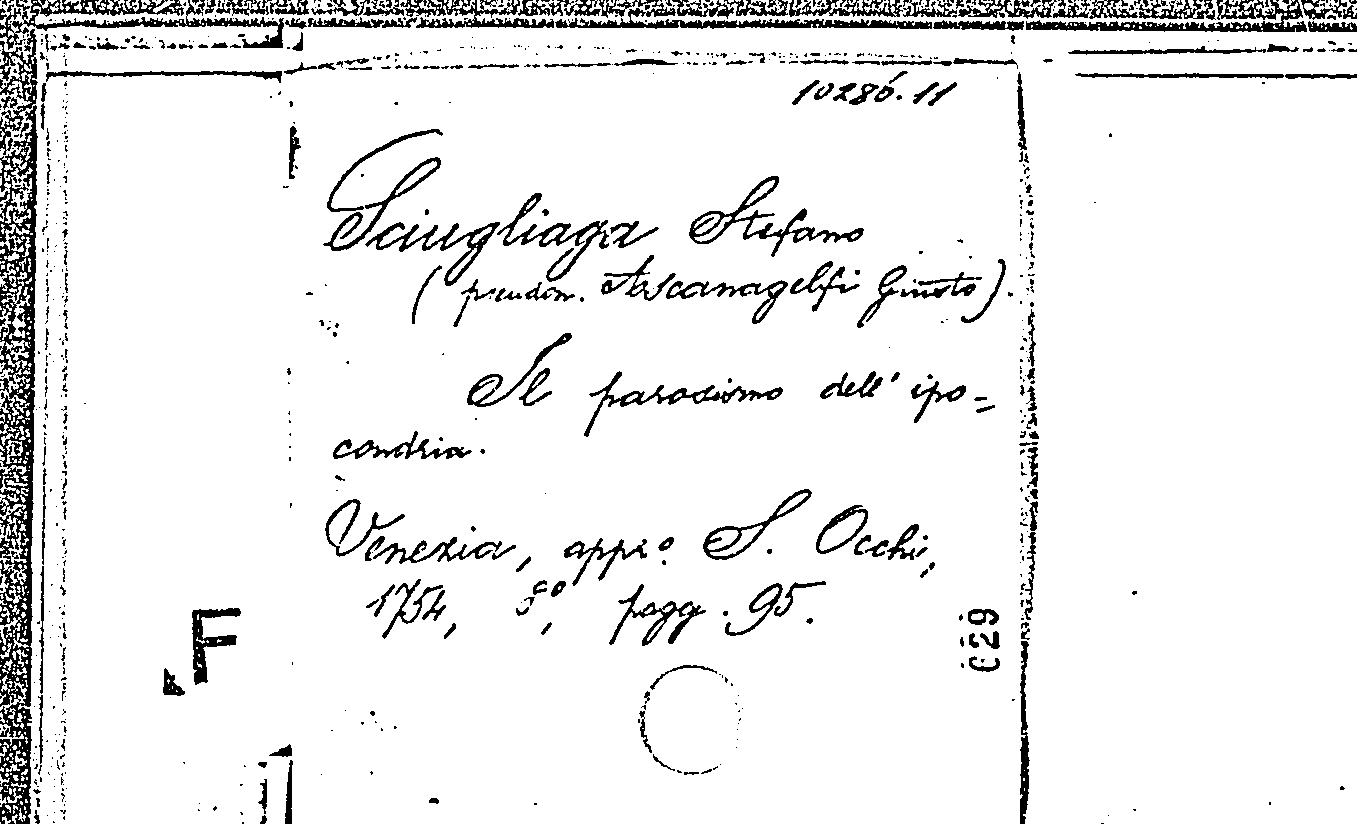 10286.11
Sciugliaga Stefano
(pseudon. Ascanagelfi Giusto).
Il parosismo dell' ipo=
condria.
Venezia, appr.º S. Occhi,
1754, 8º, pagg. 95.
F
029